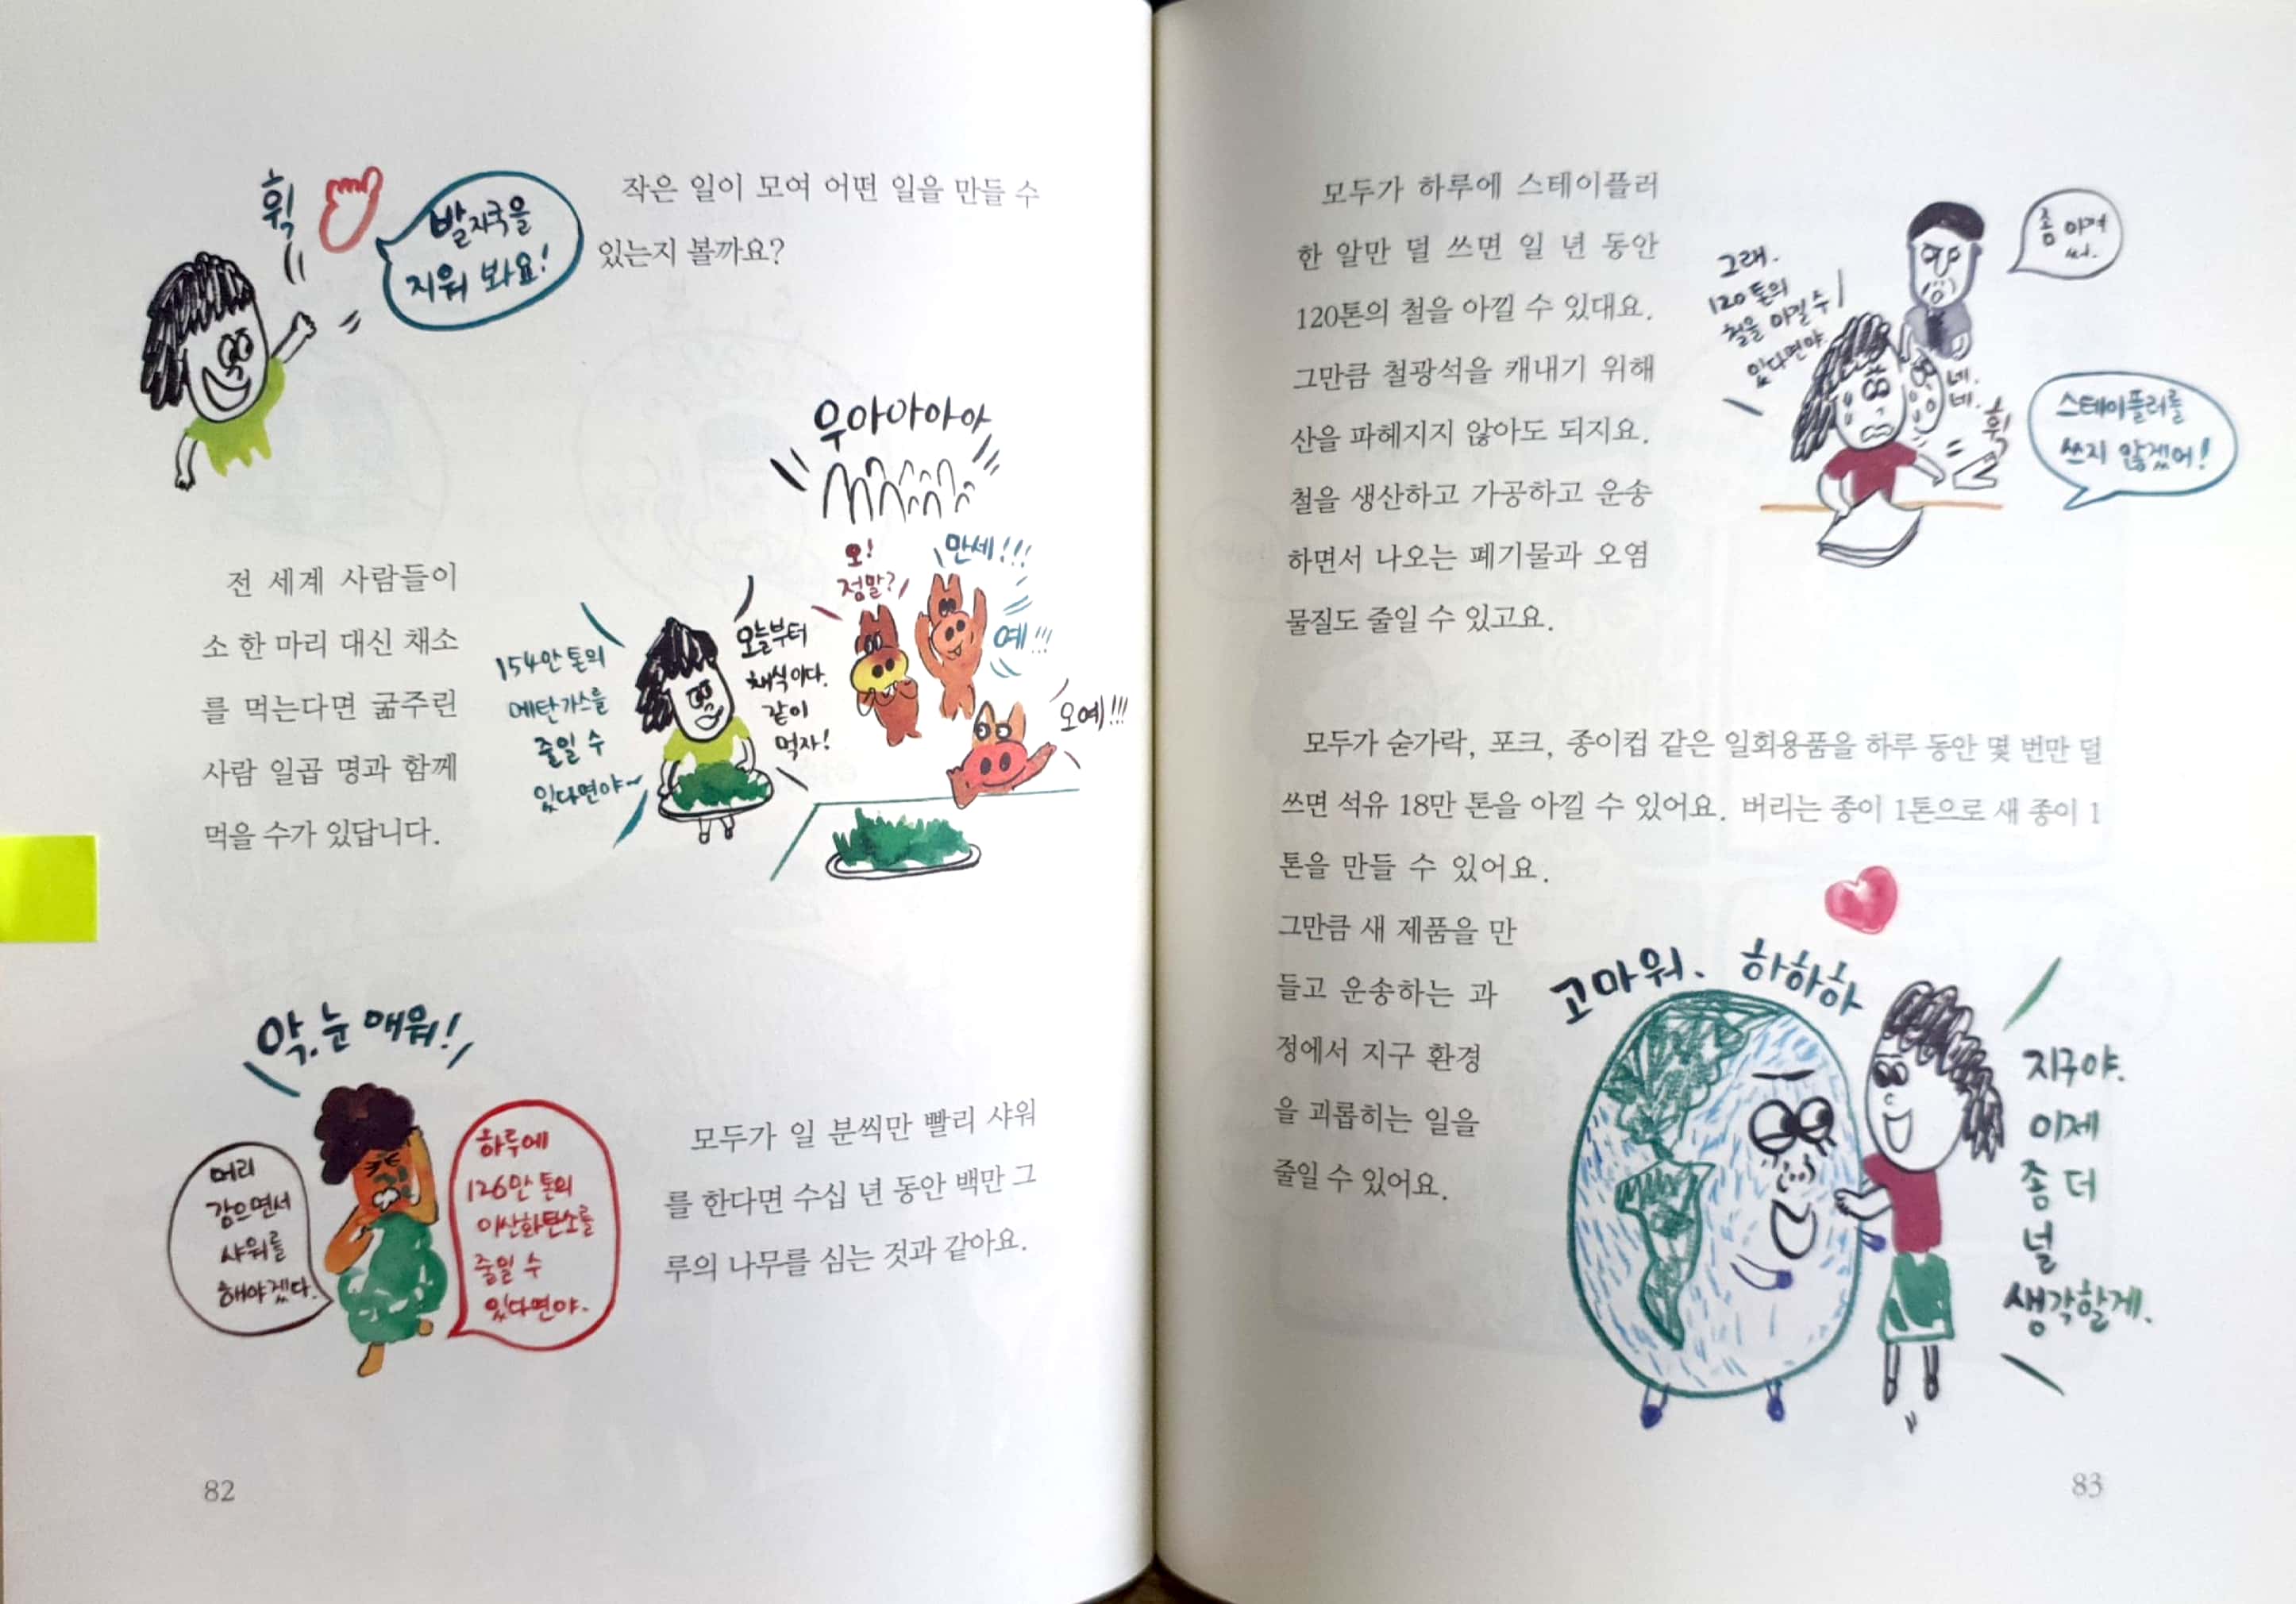 휙
발자국을
지워 봐요!
작은 일이 모여 어떤 일을 만들 수
있는지 볼까요?
우아아아아
오!
정말?
만세!!!
예!!!
오예!!!
전 세계 사람들이
소 한 마리 대신 채소
를 먹는다면 굶주린
사람 일곱 명과 함께
먹을 수가 있답니다.
154만 톤의
메탄가스를
줄일 수
있다면야~
오늘부터
채식이다.
같이
먹자!
악, 눈 매워!
머리
감으면서
샤워를
해야겠다.
하루에
126만 톤의
이산화탄소를
줄일 수
있다면야.
모두가 일 분씩만 빨리 샤워
를 한다면 수십 년 동안 백만 그
루의 나무를 심는 것과 같아요.
82
모두가 하루에 스테이플러
한 알만 덜 쓰면 일 년 동안
120톤의 철을 아낄 수 있대요.
그만큼 철광석을 캐내기 위해
산을 파헤지지 않아도 되지요.
철을 생산하고 가공하고 운송
하면서 나오는 폐기물과 오염
물질도 줄일 수 있고요.
좀 아껴
써.
그래.
120톤의
철을 아낄 수
있다면야.
네.
네.
휙
스테이플러를
쓰지 않겠어!
모두가 숟가락, 포크, 종이컵 같은 일회용품을 하루 동안 몇 번만 덜
쓰면 석유 18만 톤을 아낄 수 있어요. 버리는 종이 1톤으로 새 종이 1
톤을 만들 수 있어요.
그만큼 새 제품을 만
들고 운송하는 과
정에서 지구 환경
을 괴롭히는 일을
줄일 수 있어요.
고마워. 하하하
지구야.
이제
좀 더
널
생각할게.
83